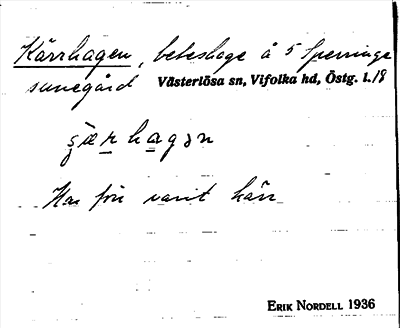 Kärrhagen, beteshage å 5 Sperringe
sunegård Västerlösa sn, Vifolka hd, Östg. l. 18
çæ̀rhagən
Har förr varit kärr
ERIK NORDELL 1936